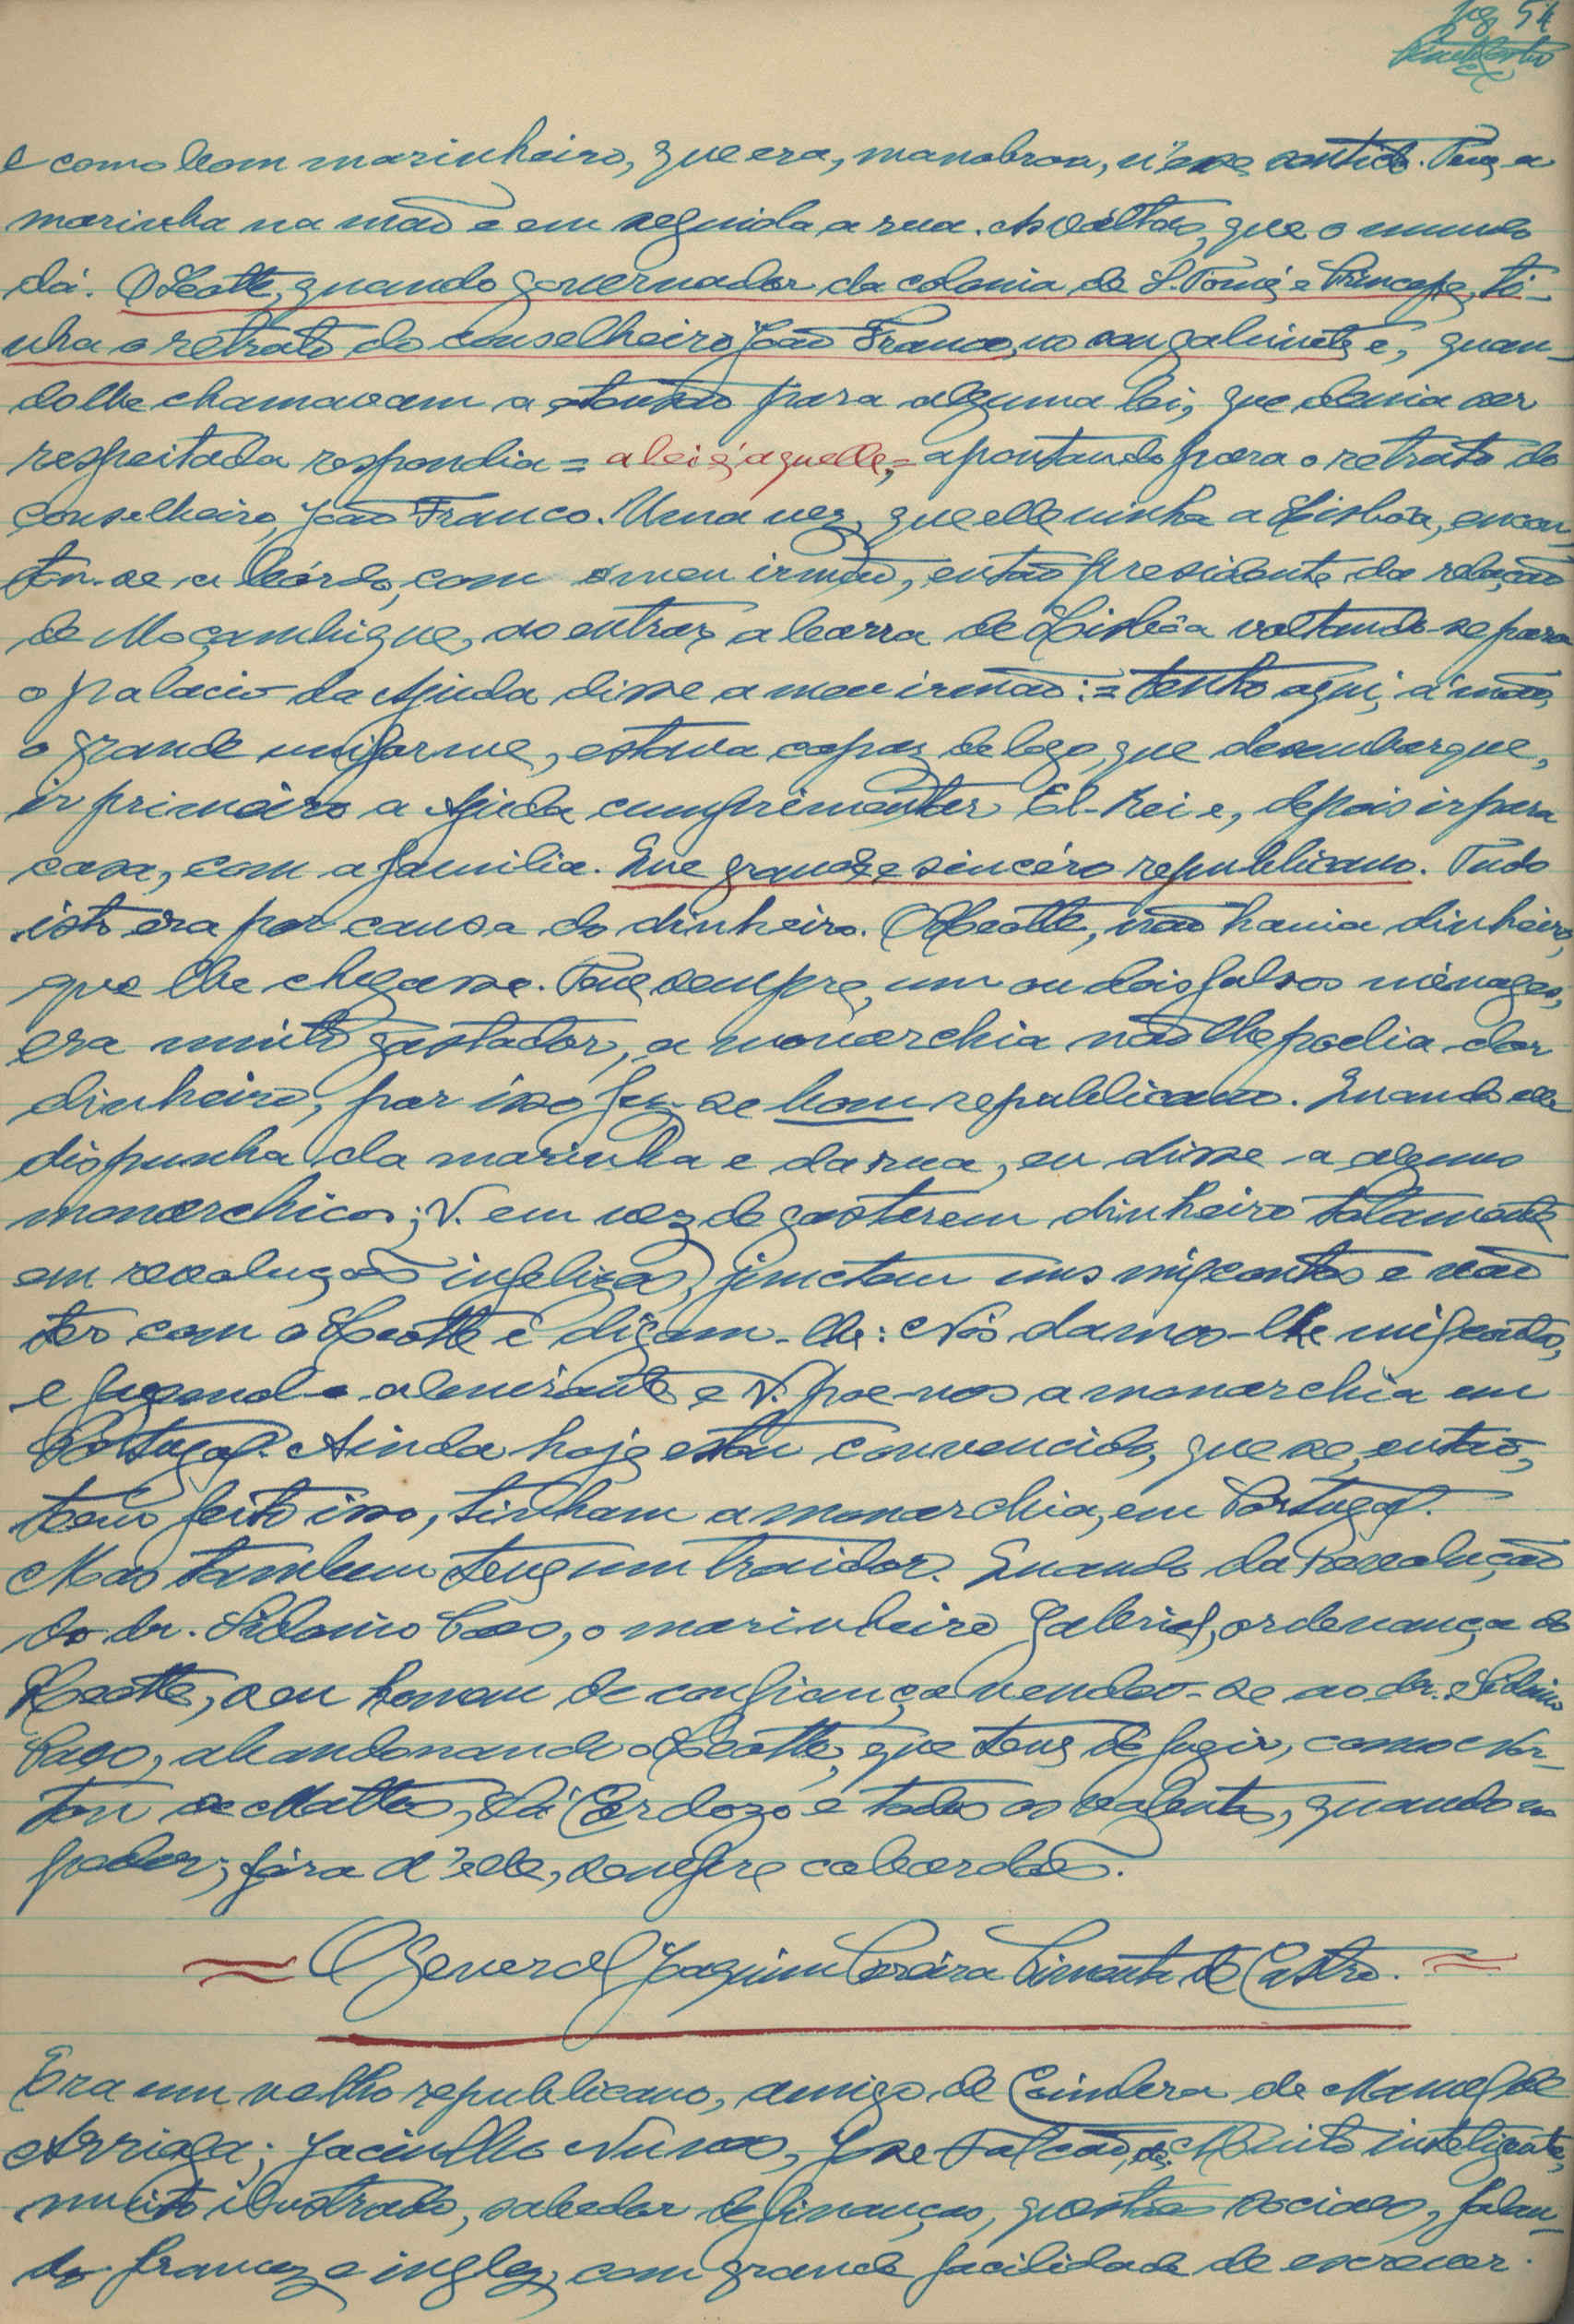 pg 54
e como bom marinheiro, que era, manobrou, n'esse sentido. Teve a
marinha na mão e em seguida a rua. As voltas, que o mundo
dá. O Leotte, quando governador da colonia de S. Tomé e Principe, ti-
nha o retrato do conselheiro João Franco, no seu gabinete e, quan-
do lhe chamavam a atenção para alguma lei, que devia ser
respeitada respondia = a lei é aquelle, = apontando para o retrato do
conselheiro, João Franco. Uma vez, que elle vinha a Lisbôa, encon-
tou-se a bórdo, com o meu irmão, então presidente da relação
de Moçambique, ao entrar a barra de Lisbôa voltando-se para
o palacio da Ajuda disse a meu irmão: = tenho aqui, á mão,
o grande uniforme, estava capaz de logo, que desembarque,
ir primeiro a Ajuda cumprimentar El-Rei e, depois ir para
casa, com a familia. Que grande e sincéro republicano. Tudo
isto era por causa do dinheiro. O Leotte, não havia dinheiro,
que lhe chegasse. Teve sempre, um ou dois falsos ménages,
era muito gastador, a monarchia não lhe podia dar
dinheiro, por isso fez-se bom republicano. Quando elle
dispunha da marinha e da rua, eu disse a alguns
monarchicos; V. em vez de gastarem dinheiro tolamente
em revoluções infelizes, junctam uns mil contos e vão
ter com o Leotte e digam-lhe: Nós damos-lhe mil contos,
e fazemol-o almirante e V. põe-nos a monarchia em
Portugal. Ainda hoje estou convencido, que se, então,
tem feito isso, tinham a monarchia, em Portugal.
Mas tambem teve um traidor. Quando da Revolução
do dr. Sidonio Paes, o marinheiro Gabriel, ordenança do
Leotte, seu homem de confiança vendeu-se ao dr. Sidonio
Paes, abandonando o Leotte, que teve de fugir, como Nor-
ton de Mattos, Sá Cardozo e todos os valentes, quando no
poder; fóra d'elle, sempre cobardes.
= O General Joaquim Pereira Pimenta de Castro. =
Era um velho republicano, amigo de Coimbra de Manuel de
Arriaga; Jacintho Nunes, José Falcão, etc. Muito inteligente,
muito ilustrado, sabedor de finanças, questões sociaes, falan-
do francez e inglez, com grande facilidade de escrever.